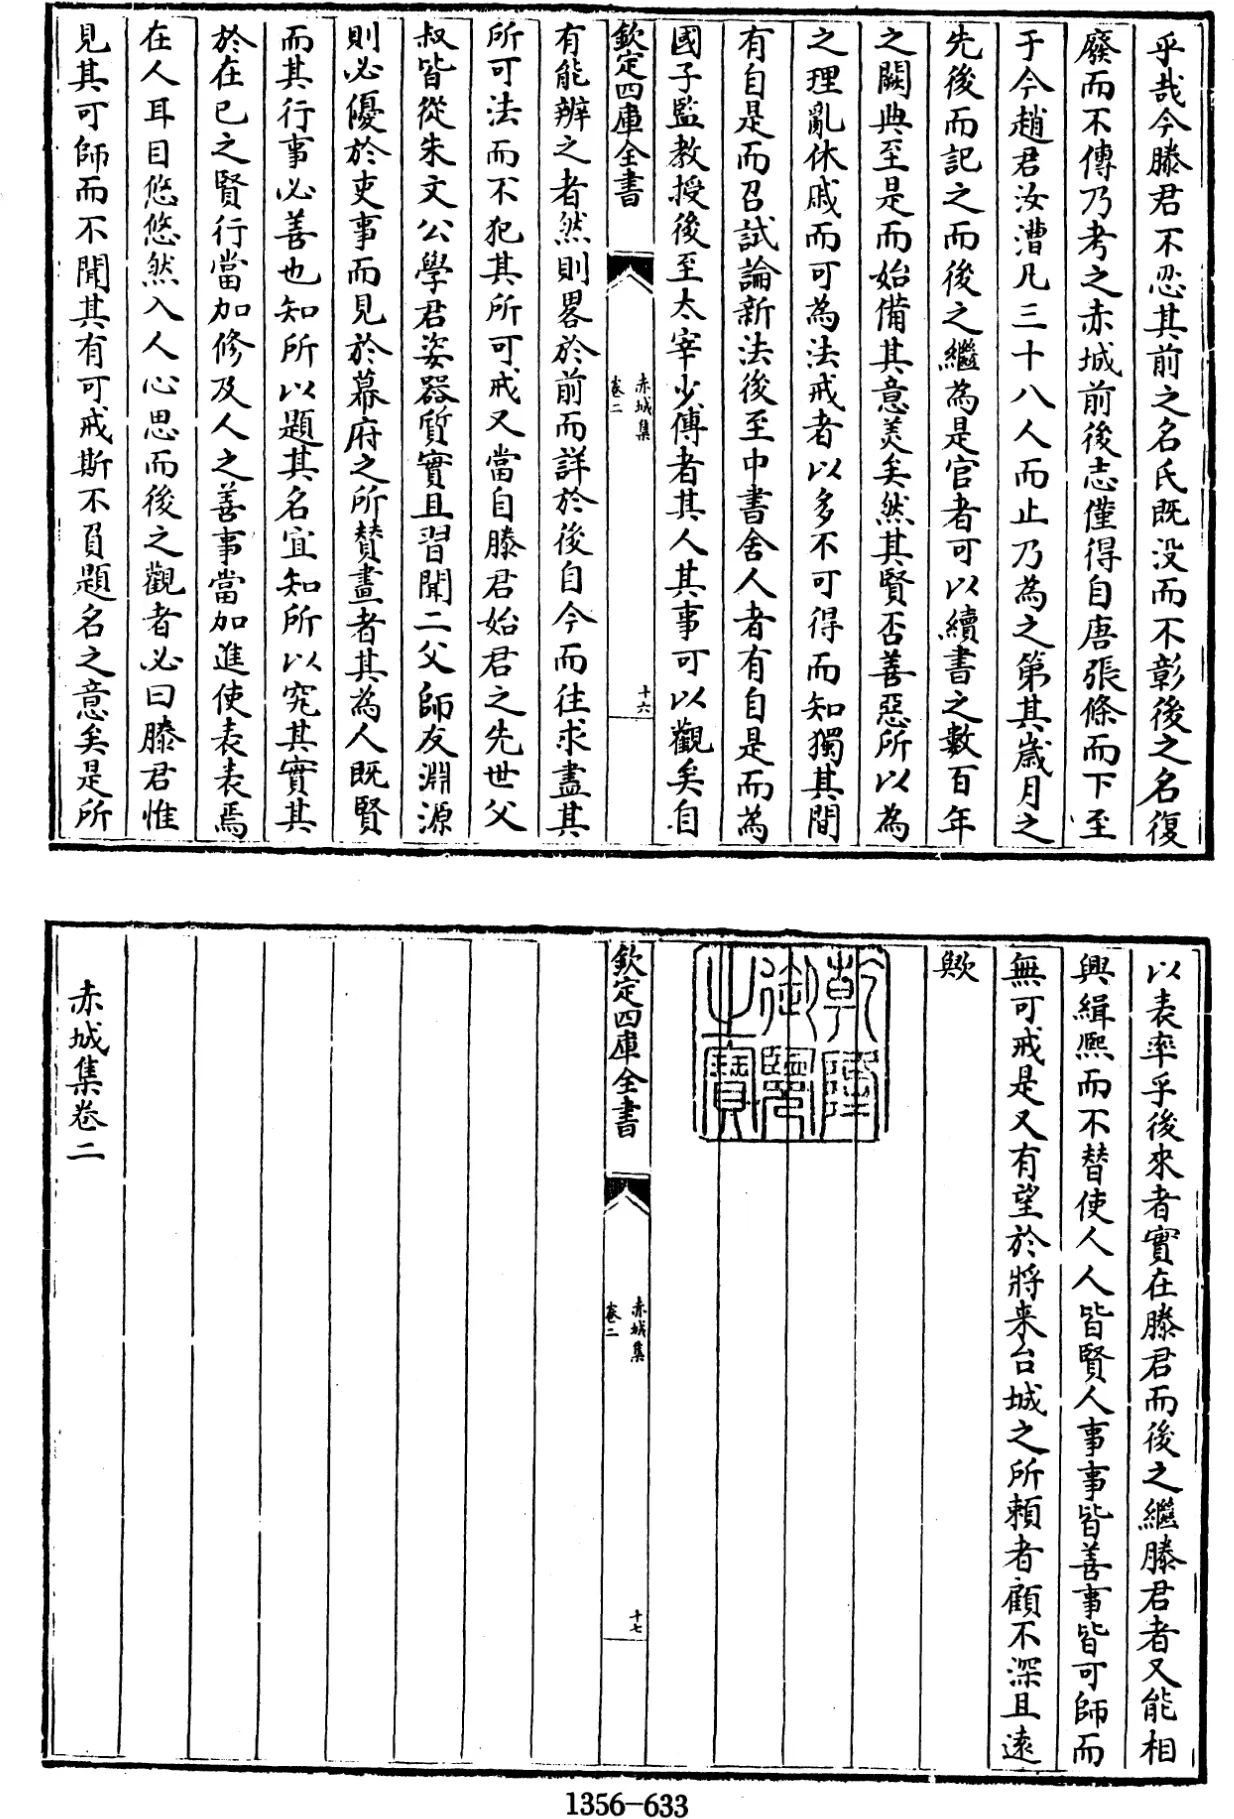 乎哉今滕君不忍其前之名氏既没而不彰後之名復
廢而不傳乃考之赤城前後志僅得自唐張條而下至
于今趙君汝漕凡三十八人而止乃為之第其嵗月之
先後而記之而後之繼為是官者可以續書之數百年
之闕典至是而始備其意羙矣然其賢否善惡所以為
之理亂休戚而可為法戒者以多不可得而知獨其間
有自是而召試論新法後至中書舍人者有自是而為
國子監教授後至太宰少傅者其人其事可以觀矣自
欽定四庫全書
赤城集
卷二
十六
有能辨之者然則畧於前而詳於後自今而往求盡其
所可法而不犯其所可戒又當自滕君始君之先世父
叔皆從朱文公學君姿器質實且習聞二父師友淵源
則必優於吏事而見於幕府之所賛畫者其為人既賢
而其行事必善也知所以題其名宜知所以究其實其
於在已之賢行當加修及人之善事當加進使表表焉
在人耳目悠悠然入人心思而後之觀者必曰滕君惟
見其可師而不聞其有可戒斯不負題名之意矣是所
以表率乎後來者實在滕君而後之繼滕君者又能相
興緝熙而不替使人人皆賢人事事皆善事皆可師而
無可戒是又有望於將来台城之所頼者顧不深且遠
歟
乾隆御覽之寶
欽定四庫全書
赤城集
卷二
十七
赤城集卷二
1356-633